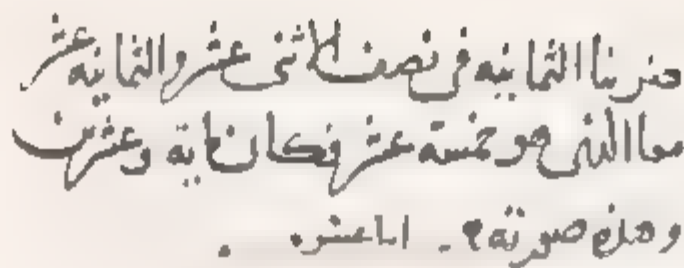 ضربنا الثمانيه في نصف الاثنى عشر والثمانيه عشر
معا الذي هو خمسة عشر فكان ماية وعشرين
وهذه صورته